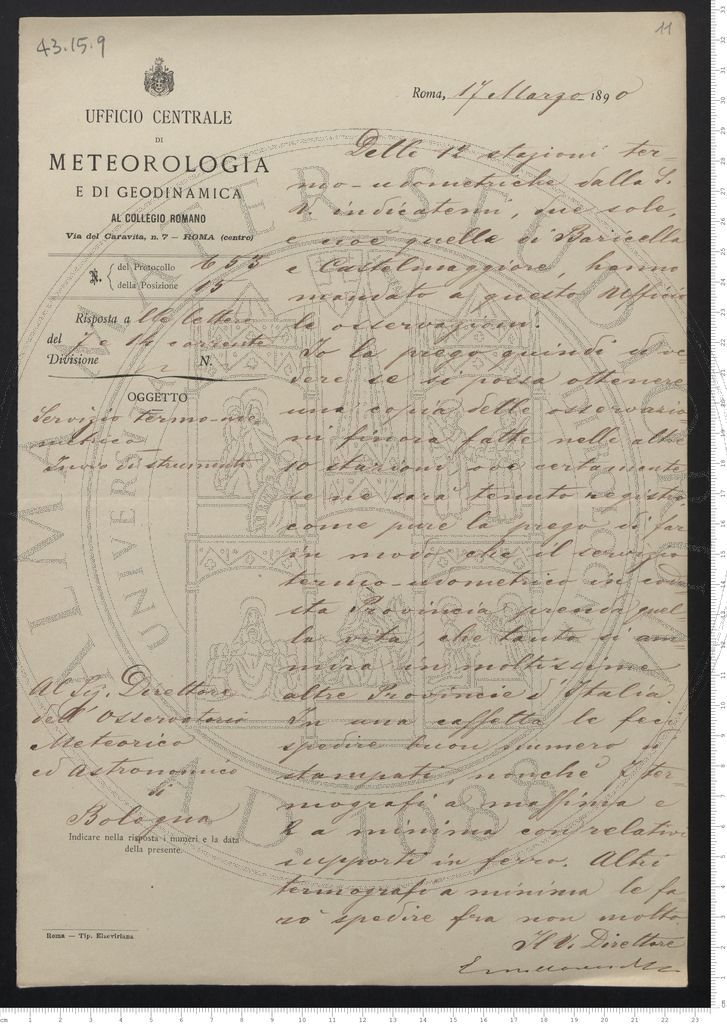 43.15.9
11
UFFICIO CENTRALE
DI
METEOROLOGIA
E DI GEODINAMICA
AL COLLEGIO ROMANO
Via del Caravita, n. 7 — ROMA (centro)
N. { del Protocollo 653
della Posizione 15
Risposta a lle lettere
del 7 e 14 corrente
Divisione N.
OGGETTO
Servizio termo-
metrico
Invio di strumenti
Al Sig. Direttore
dell'Osservatorio
Meteorico
ed Astronomico
di
Bologna
Indicare nella risposta i numeri e la data
della presente.
Roma — Tip. Elzeviriana
Roma, 17 Marzo 1890
Delle 12 stazioni ter-
mo-udometriche dalla S.
V. indicatemi, due sole,
e cioè quelle di Baricella
e Castelmaggiore, hanno
mandato a questo Ufficio
le osservazioni.
Io la prego quindi di ve-
dere se si possa ottenere
una copia delle osservazio
ni finora fatte nelle altre
10 stazioni, ove certamente
se ne sarà tenuto registro
come pure la prego di far
in modo che il servizio
termo-udometrico in code
sta Provincia prenda quel
la vita, che tanto si am
mira in moltissime
altre Provincie d'Italia
In una cassetta le feci
spedire buon numero di
stampati, nonchè 2 ter-
mografi a massima e
2 a minima con relativi
supporti in ferro. Altri
termografi a minima le fa
rò spedire fra non molto
Il V. Direttore
ALMA MATER STUDIORUM
A.D. 1088